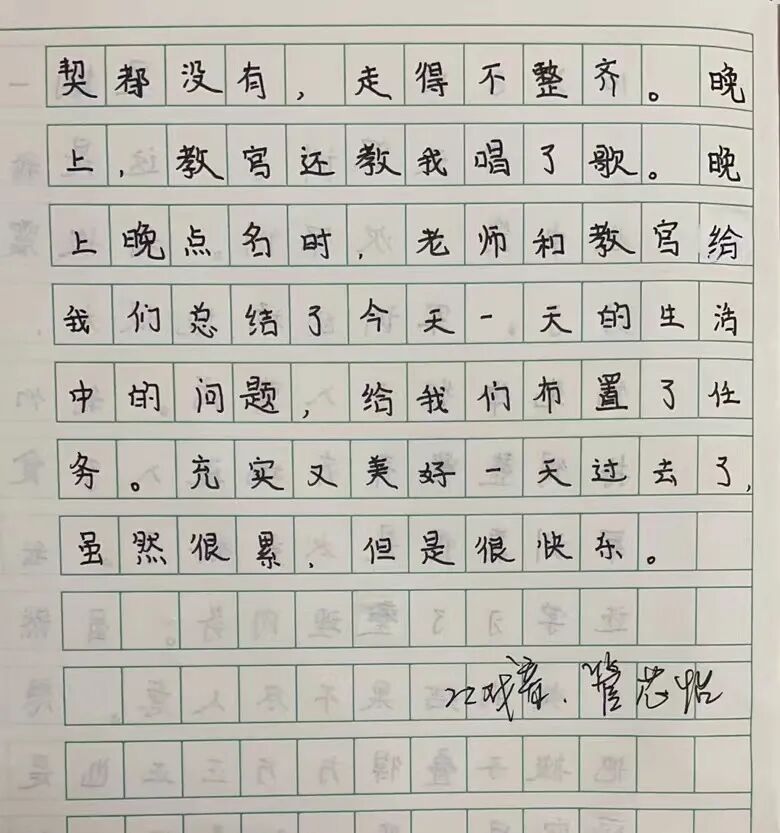 契都没有，走得不整齐。晚
上，教官还教我唱了歌。晚
上晚点名时，老师和教官给
我们总结了今天一天的生活
中的问题，给我们布置了任
务。充实又美好一天过去了，
虽然很累，但是很快乐。
管芯怡